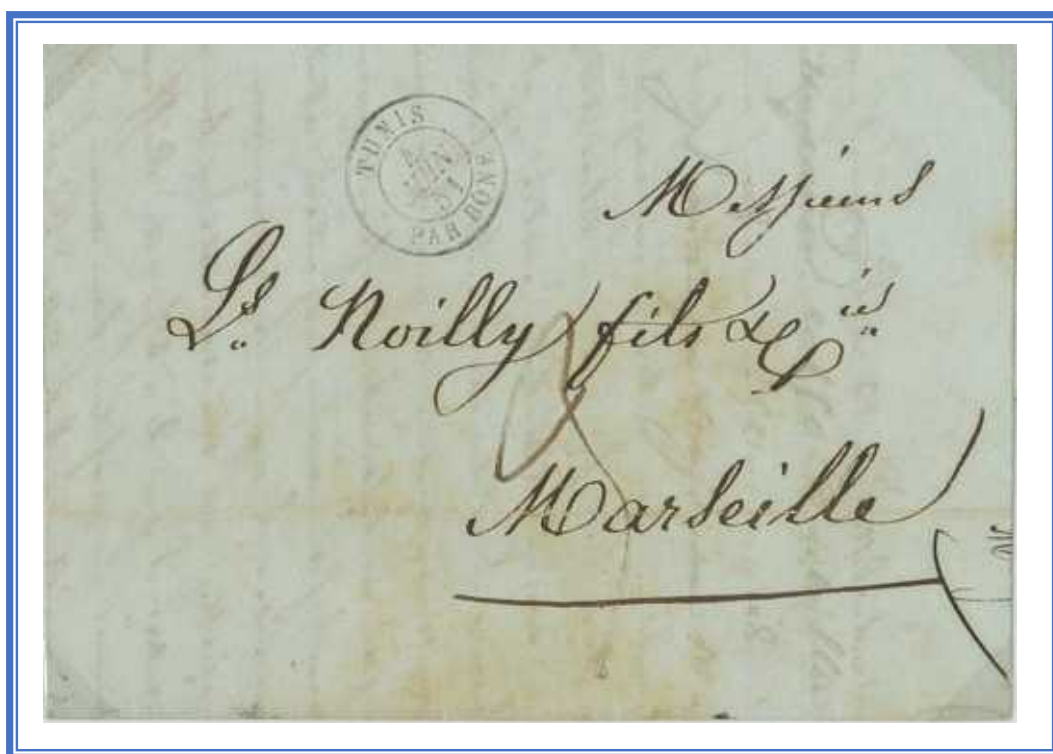 TUNIS
JUIN
51
PAR BONE
Messieurs
Ls. Noilly fils & Cie
Marseille